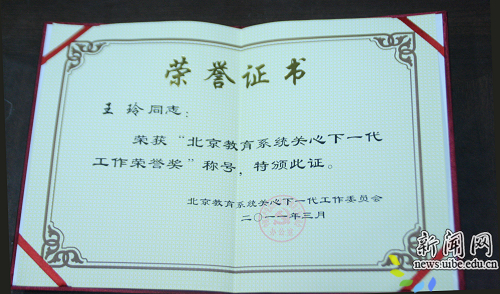 荣誉证书
王玲同志：
荣获“北京教育系统关心下一代
工作荣誉奖”称号，特颁此证。
北京教育系统关心下一代工作委员会
二〇一一年三月
新闻网
news.uibe.edu.cn